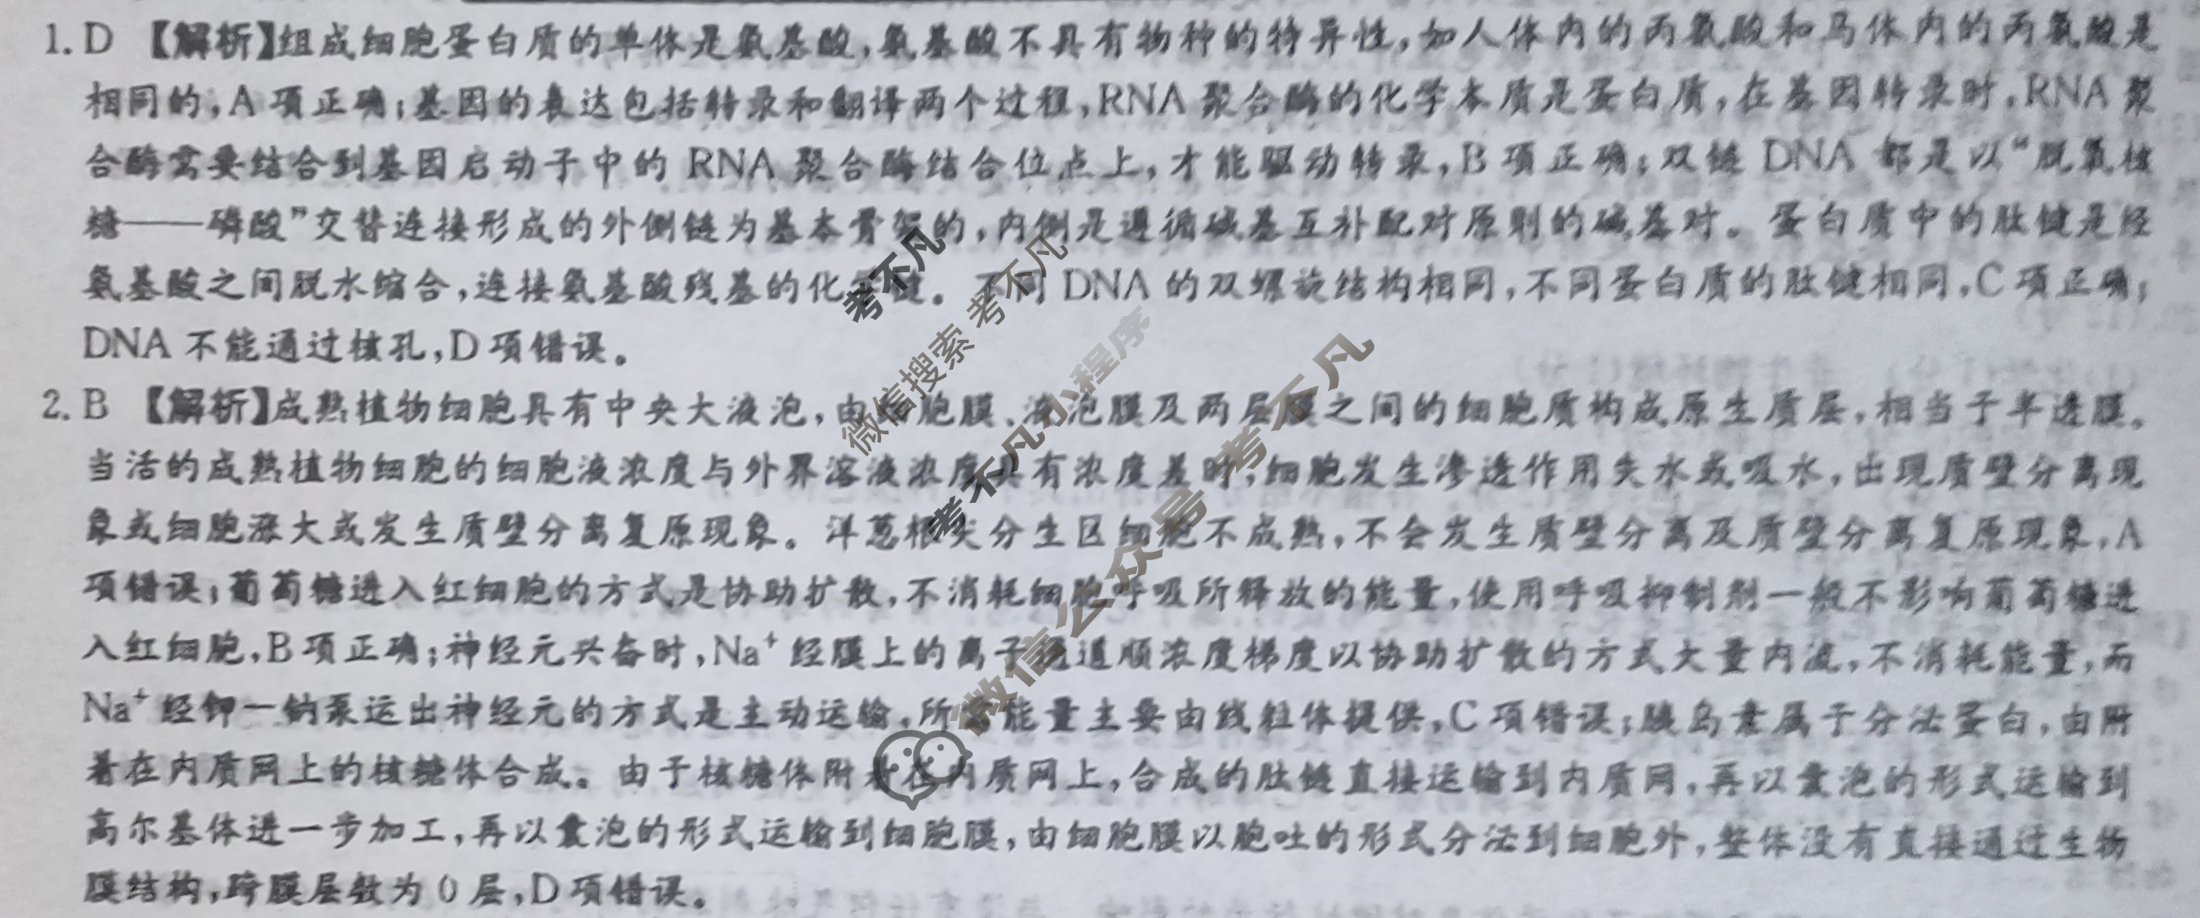 1. D 【解析】组成细胞蛋白质的单体是氨基酸,氨基酸不具有物种的特异性,如人体内的丙氨酸和马体内的丙氨酸是
相同的,A 项正确;基因的表达包括转录和翻译两个过程,RNA 聚合酶的化学本质是蛋白质,在基因转录时,RNA 聚
合酶需要结合到基因启动子中的 RNA 聚合酶结合位点上,才能驱动转录,B 项正确;双链 DNA 都是以“脱氧核
糖——磷酸”交替连接形成的外侧链为基本骨架的,内侧是遵循碱基互补配对原则的碱基对。蛋白质中的肽键是经
氨基酸之间脱水缩合,连接氨基酸残基的化学键。不同 DNA 的双螺旋结构相同,不同蛋白质的肽键相同,C 项正确;
DNA 不能通过核孔,D 项错误。
2. B 【解析】成熟植物细胞具有中央大液泡,由细胞膜、液泡膜及两层膜之间的细胞质构成原生质层,相当于半透膜。
当活的成熟植物细胞的细胞液浓度与外界溶液浓度具有浓度差时,细胞发生渗透作用失水或吸水,出现质壁分离现
象或细胞涨大或发生质壁分离复原现象。洋葱根尖分生区细胞不成熟,不会发生质壁分离及质壁分离复原现象,A
项错误;葡萄糖进入红细胞的方式是协助扩散,不消耗细胞呼吸所释放的能量,使用呼吸抑制剂一般不影响葡萄糖进
入红细胞,B 项正确;神经元兴奋时,Na⁺ 经膜上的离子通道顺浓度梯度以协助扩散的方式大量内流,不消耗能量,而
Na⁺ 经钾—钠泵运出神经元的方式是主动运输,所需能量主要由线粒体提供,C 项错误;胰岛素属于分泌蛋白,由附
着在内质网上的核糖体合成。由于核糖体附着在内质网上,合成的肽链直接运输到内质网,再以囊泡的形式运输到
高尔基体进一步加工,再以囊泡的形式运输到细胞膜,由细胞膜以胞吐的形式分泌到细胞外,整体没有直接通过生物
膜结构,跨膜层数为 0 层,D 项错误。
考不凡
微信搜索 考不凡
考不凡小程序
微信公众号 考不凡